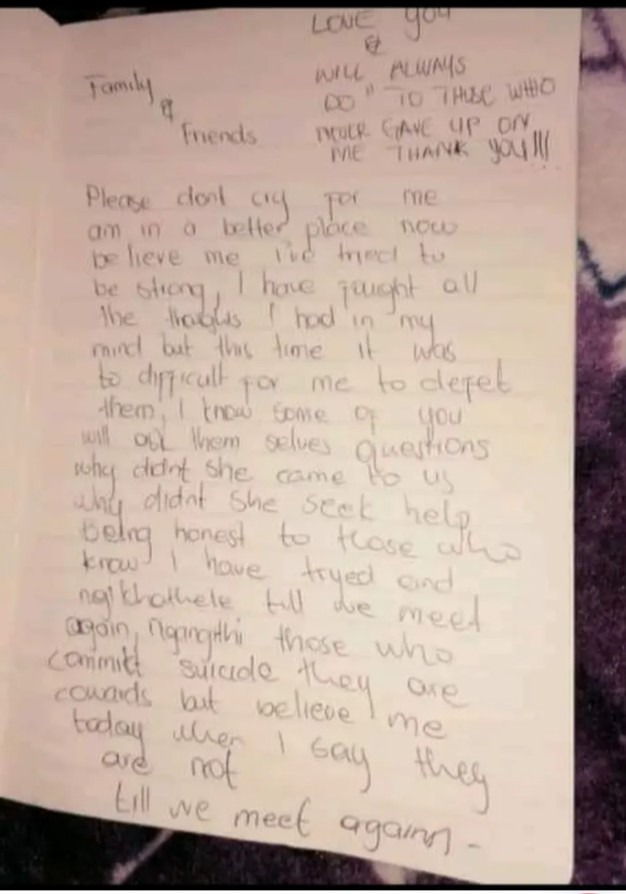 LOVE you
&
WILL ALWAYS
DO" TO THOSE WHO
NEVER GAVE UP ON
ME THANK YOU!!!
Family
&
Friends
Please dont cry for me
am in a better place now
believe me i've tried to
be strong, I have fought all
the thougts I had in my
mind but this time it was
to difficult for me to defet
them, I know some of you
will ask them selves questions
why didnt she came to us
why didnt she seek help
being honest to those who
know I have tryed and
ngikhathele till we meet
again, ngangithi those who
committ suicide they are
cowards but believe me
today when I say they
are not
till we meet againn -